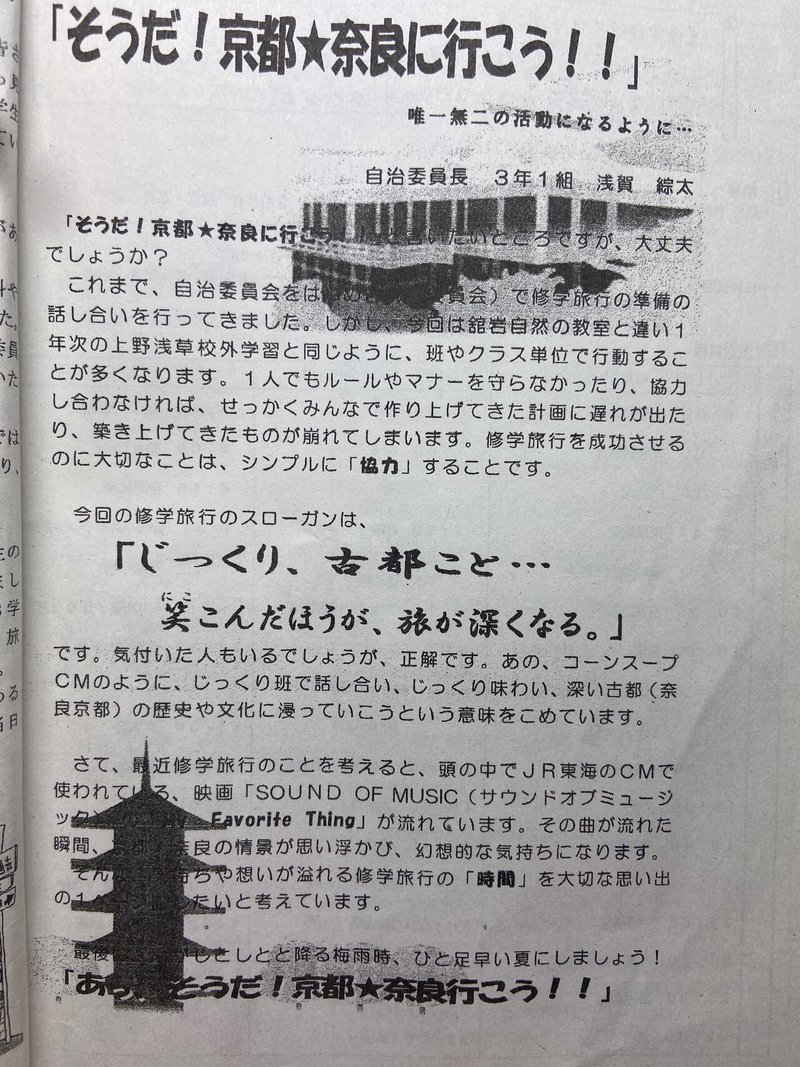 「そうだ！京都★奈良に行こう！！」
唯一無二の活動になるように…
自治委員長　３年１組　浅賀　綜太
「そうだ！京都★奈良に行こう 言いたいところですが、大丈夫
でしょうか？
これまで、自治委員会をはじめ 委員会）で修学旅行の準備の
話し合いを行ってきました。しかし、今回は舘岩自然の教室と違い１
年次の上野浅草校外学習と同じように、班やクラス単位で行動するこ
とが多くなります。１人でもルールやマナーを守らなかったり、協力
し合わなければ、せっかくみんなで作り上げてきた計画に遅れが出た
り、築き上げてきたものが崩れてしまいます。修学旅行を成功させる
のに大切なことは、シンプルに「協力」することです。
今回の修学旅行のスローガンは、
「じっくり、古都こと…
にこ
笑こんだほうが、旅が深くなる。」
です。気付いた人もいるでしょうが、正解です。あの、コーンスープ
ＣＭのように、じっくり班で話し合い、じっくり味わい、深い古都（奈
良京都）の歴史や文化に浸っていこうという意味をこめています。
さて、最近修学旅行のことを考えると、頭の中でＪＲ東海のＣＭで
使われている、映画「SOUND OF MUSIC（サウンドオブミュージ
ック）の「My Favorite Thing」が流れています。その曲が流れた
瞬間、京都 奈良の情景が思い浮かび、幻想的な気持ちになります。
そんな 持ちや想いが溢れる修学旅行の「時間」を大切な思い出
の１ページにしたいと考えています。
最後に しとしとと降る梅雨時、ひと足早い夏にしましょう！
「あっ そうだ！京都★奈良行こう！！」